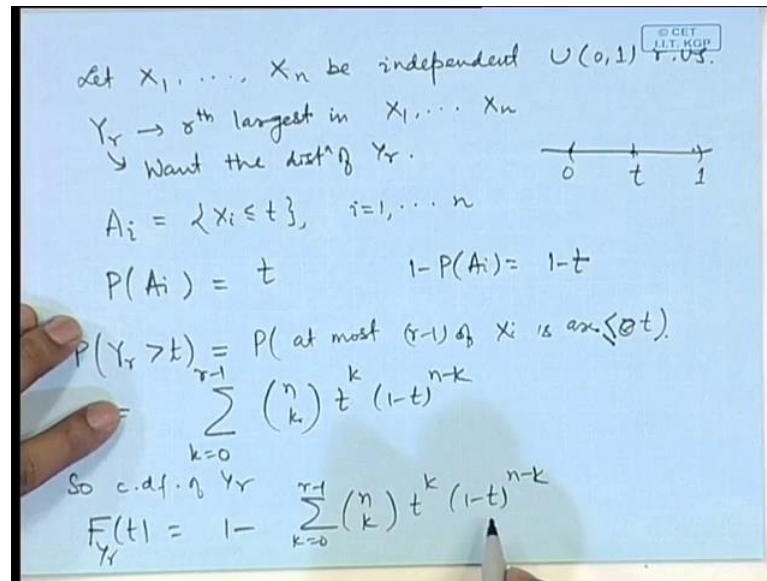 © CET
I.I.T. KGP
Let X₁, ...., Xₙ be independent U(0,1) r.vs.
Yᵣ → rᵗʰ largest in X₁, .... Xₙ
↘ Want the distⁿ of Yᵣ.
0 t 1
Aᵢ = {Xᵢ ≤ t}, i=1, ... n
P(Aᵢ) = t 1-P(Aᵢ) = 1-t
P(Yᵣ > t) = P( at most (r-1) of Xᵢ is ≤ t).
= ∑_{k=0}^{r-1} (n k) t^k (1-t)^{n-k}
So c.d.f. of Yᵣ
F_{Yᵣ}(t) = 1 - ∑_{k=0}^{r-1} (n k) t^k (1-t)^{n-k}